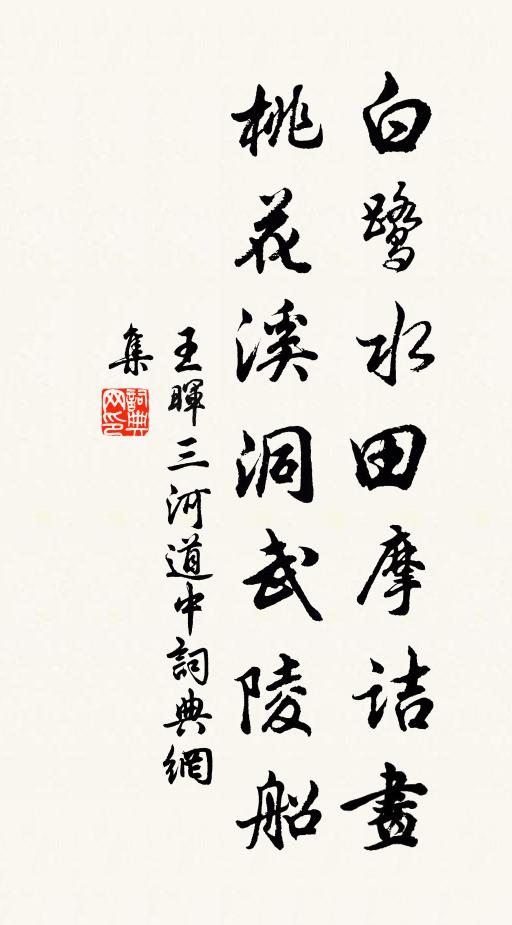 白鹭水田摩詰畫
桃花溪洞武陵船
王暉三河道中詞典網
集
詞典
网印